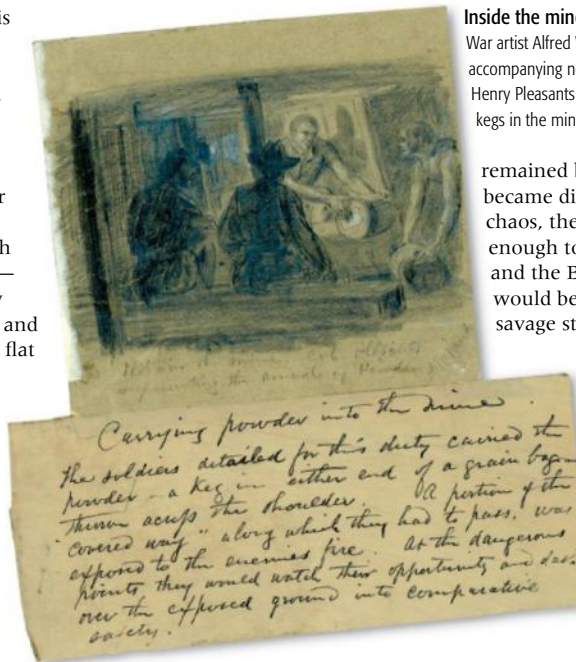 is
r
h
—
and
flat
Inside the mine
War artist Alfred
accompanying
Henry Pleasants
kegs in the
remained
became
chaos, the
enough to
and the
would be
savage
the arrival of Powder
Carrying powder into the Mine.
The soldiers detailed for this duty carried the
powder – a keg in either end of a grain bag
thrown across the shoulder. A portion of the
"covered way" along which they had to pass, was
exposed to the enemies fire. At the dangerous
points they would watch their opportunity and
over the exposed ground into comparative
safety.